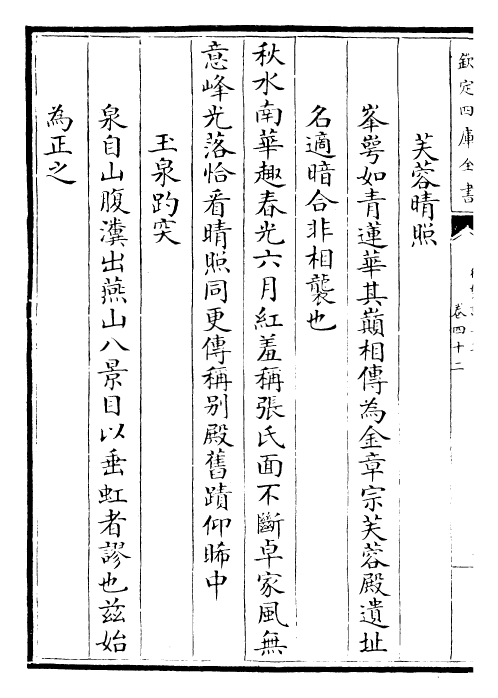 欽定四庫全書
卷四十二
芙蓉晴照
峯萼如青蓮華其巔相傳為金章宗芙蓉殿遺址
名適暗合非相襲也
秋水南華趣春光六月紅羞稱張氏面不斷卓家風無
意峰光落恰看晴照同更傳稱别殿舊蹟仰晞中
玉泉趵突
泉自山腹瀵出燕山八景目以垂虹者謬也兹始
為正之